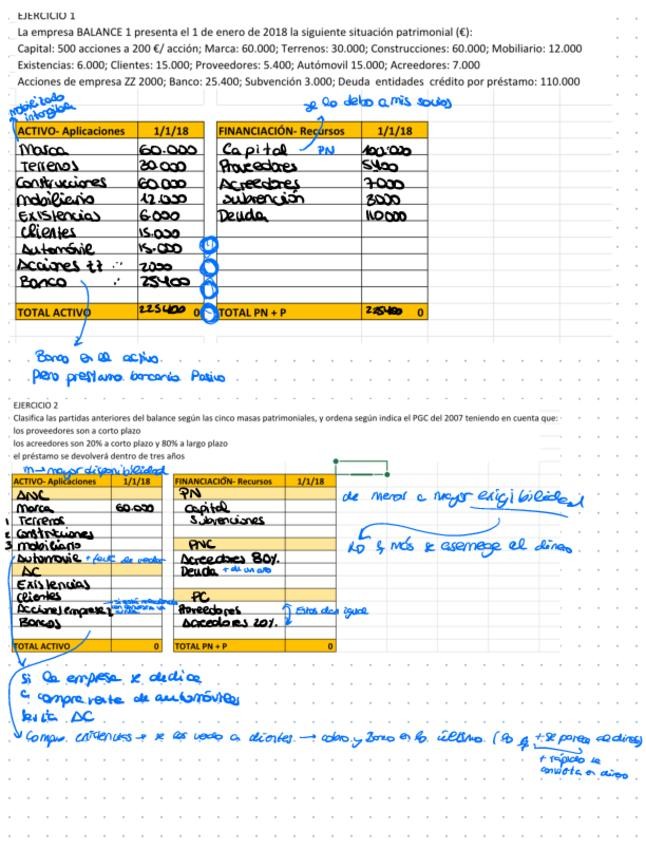 EJERCICIO 1
La empresa BALANCE 1 presenta el 1 de enero de 2018 la siguiente situación patrimonial (€):
Capital: 500 acciones a 200 €/ acción; Marca: 60.000; Terrenos: 30.000; Construcciones: 60.000; Mobiliario: 12.000
Existencias: 6.000; Clientes: 15.000; Proveedores: 5.400; Autómovil 15.000; Acreedores: 7.000
Acciones de empresa ZZ 2000; Banco: 25.400; Subvención 3.000; Deuda entidades crédito por préstamo: 110.000
inmobilizado intangible
se lo debo a mis socios
ACTIVO- Aplicaciones 1/1/18 FINANCIACIÓN- Recursos 1/1/18
Marca 60.000 Capital PN 100.000
Terrenos 30.000 Proveedores 5400
Construcciones 60000 Acreedores 7000
mobiliario 12.000 subvención 3000
Existencias 6.000 Deuda 110000
Clientes 15.000
Automóvile 15.000
Acciones zz 2000
Banco 25400
TOTAL ACTIVO 225400 0 TOTAL PN + P 225400 0
Banco en el activo.
Pero prestamo bancario Pasivo
EJERCICIO 2
Clasifica las partidas anteriores del balance según las cinco masas patrimoniales, y ordena según indica el PGC del 2007 teniendo en cuenta que:
los proveedores son a corto plazo
los acreedores son 20% a corto plazo y 80% a largo plazo
el préstamo se devolverá dentro de tres años
mayor disponibilidad
ACTIVO- Aplicaciones 1/1/18 FINANCIACIÓN- Recursos 1/1/18
ANC PN
Marca 60.000 Capital
1 Terrenos Subvenciones
2 Construcciones
3 mobiliario PNC
Automovile Acreedores 80%.
AC Deuda + de un año
Existencias
Clientes PC
Acciones empresa Z Proveedores
Bancos Acreedores 20%.
TOTAL ACTIVO 0 TOTAL PN + P 0
de menor a mayor exigibilidad
lo q más se asemeje al dinero
Estos dan igual
si la empresa se dedica
a compra venta de automóviles
AC
Compro existencias → se las vendo a clientes → cobro y banco en lo último. (lo q + se parece al dinero)
+ rápido se
convierta en dinero